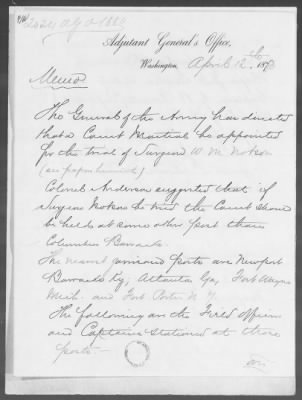 2034 AGO 1880
Adjutant General's Office,
Washington, April 12th, 187
Memo
The General of the Army has directed
that a Court Martial be appointed
for the trial of Surgeon W. M. Notson
(see paper herewith).
Colonel Anderson suggested that if
Surgeon Notson be tried the Court should
be held at some other post than
Columbus Barracks.
The nearest garrisoned posts are Newport
Barracks Ky, Atlanta Ga, Fort Wayne
Mich. and Fort Porter N.Y.
The following are the Field officers
and Captains stationed at those
posts —